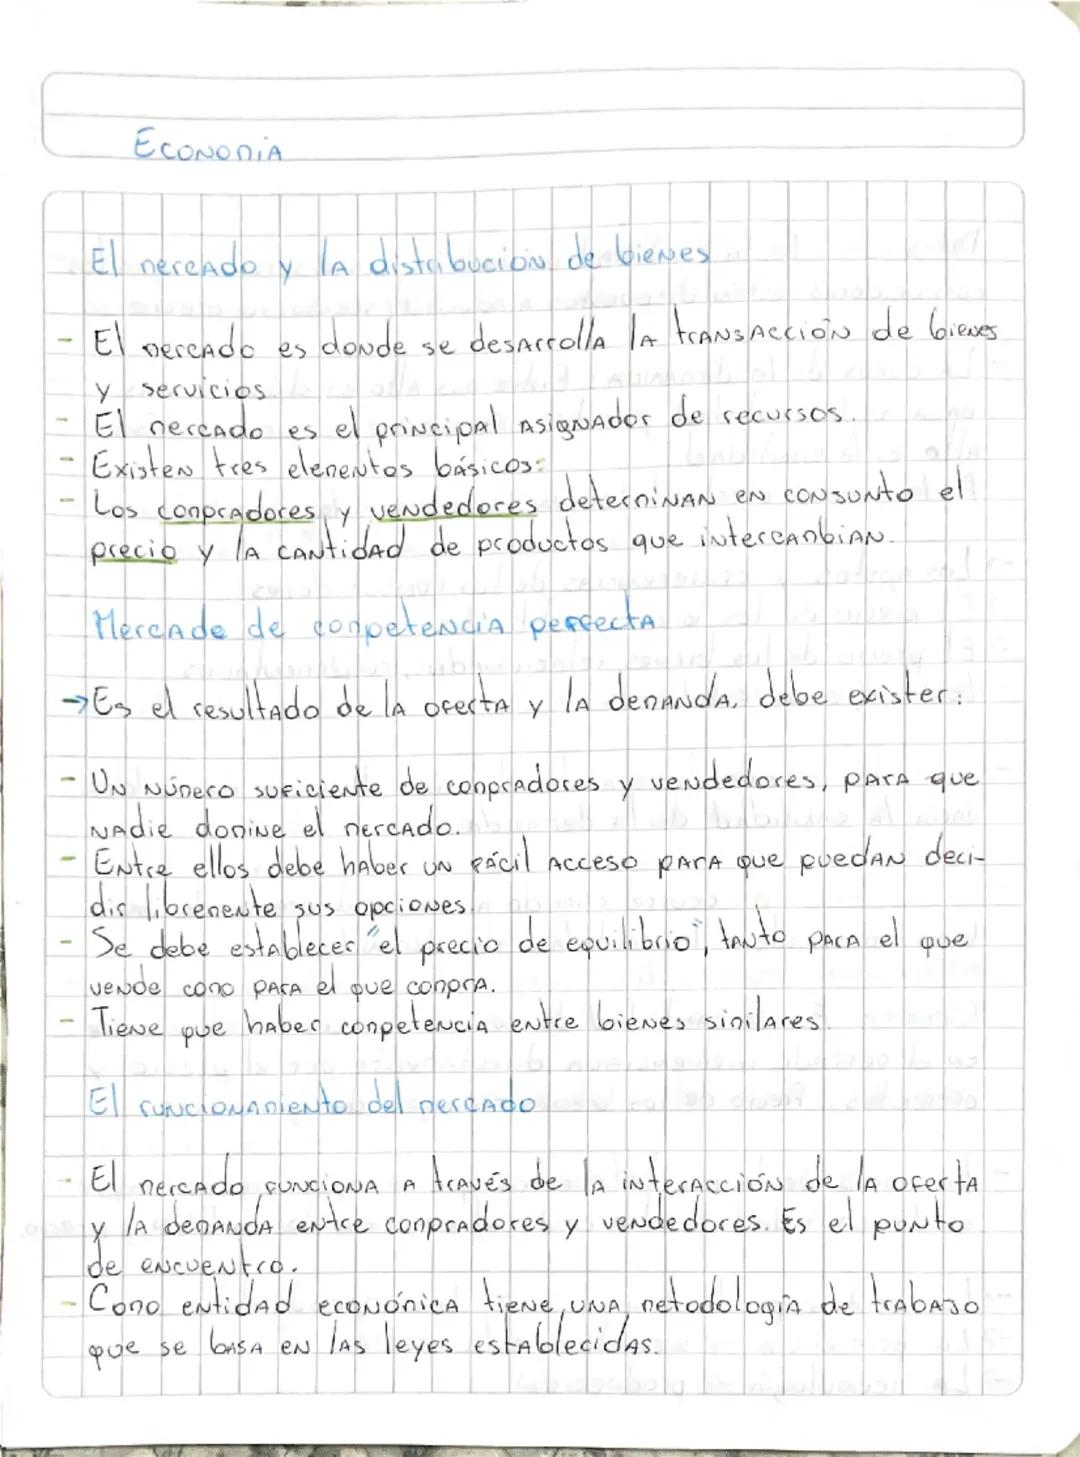 Economia
El mercado y la distribución de bienes
- El mercado es donde se desarrolla la transacción de bienes
y servicios.
- El mercado es el principal asignador de recursos.
- Existen tres elementos básicos:
- Los compradores y vendedores determinan en consunto el
precio y la cantidad de productos que intercambian.
Mercado de competencia perfecta
→ Es el resultado de la oferta y la demanda. debe exister:
- Un número suficiente de compradores y vendedores, para que
nadie domine el mercado.
- Entre ellos debe haber un fácil acceso para que puedan deci-
dir libremente sus opciones.
- Se debe establecer "el precio de equilibrio", tanto para el que
vende como para el que compra.
- Tiene que haber competencia entre bienes similares.
El funcionamiento del mercado
- El mercado funciona a través de la interacción de la oferta
y la demanda entre compradores y vendedores. Es el punto
de encuentro.
- Como entidad económica tiene una metodología de trabajo
que se basa en las leyes establecidas.